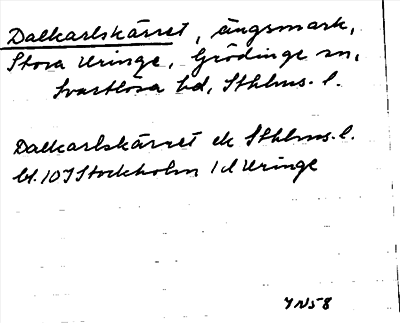 Dalkarlskärret, ängsmark,
Stora Uringe, Grödinge sn,
Svartlösa hd, Sthlms. l.
Dalkarlskärret ek Sthlms. l.
bl. 10 I Stockholm 1 d Uringe
I N 58